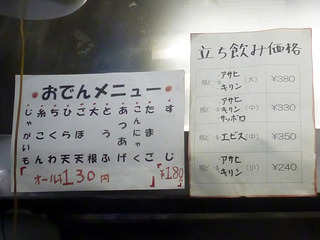 おでんメニュー
すじ
たまご
こんにゃく
あつあげ
とうふ
大根
ごぼ天
ひら天
ちくわ
糸こん
じゃがいも
オール¥130円
¥180
立ち飲み価格
瓶ビール アサヒ キリン (大) ¥380
瓶ビール アサヒ キリン サッポロ (中) ¥330
瓶ビール エビス (中) ¥350
瓶ビール アサヒ キリン (小) ¥240